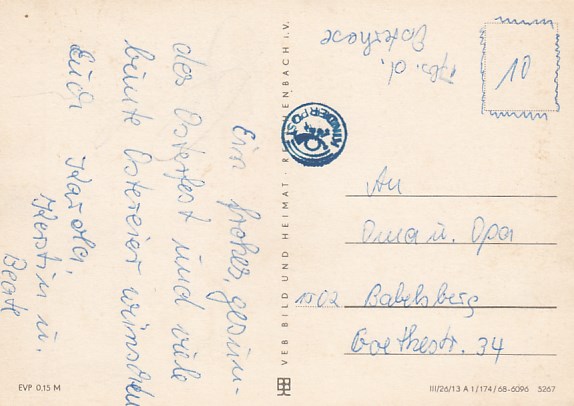 Ein frohes, gesun-
des Osterfest und viele
bunte Ostereier wünschen
Euch Karola,
Kerstin u.
Beate
EVP 0,15 M
VEB BILD UND HEIMAT · REICHENBACH I.V.
Abs. d.
Osterhase
10
KINDERPOST
An
Oma u. Opa
1502 Babelsberg
Goethestr. 34
III/26/13 A 1/174/68-6096 5267